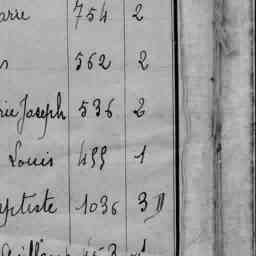 arre 754 2
s 562 2
rie Joseph 536 2
Louis 499 1
aptiste 1036 3